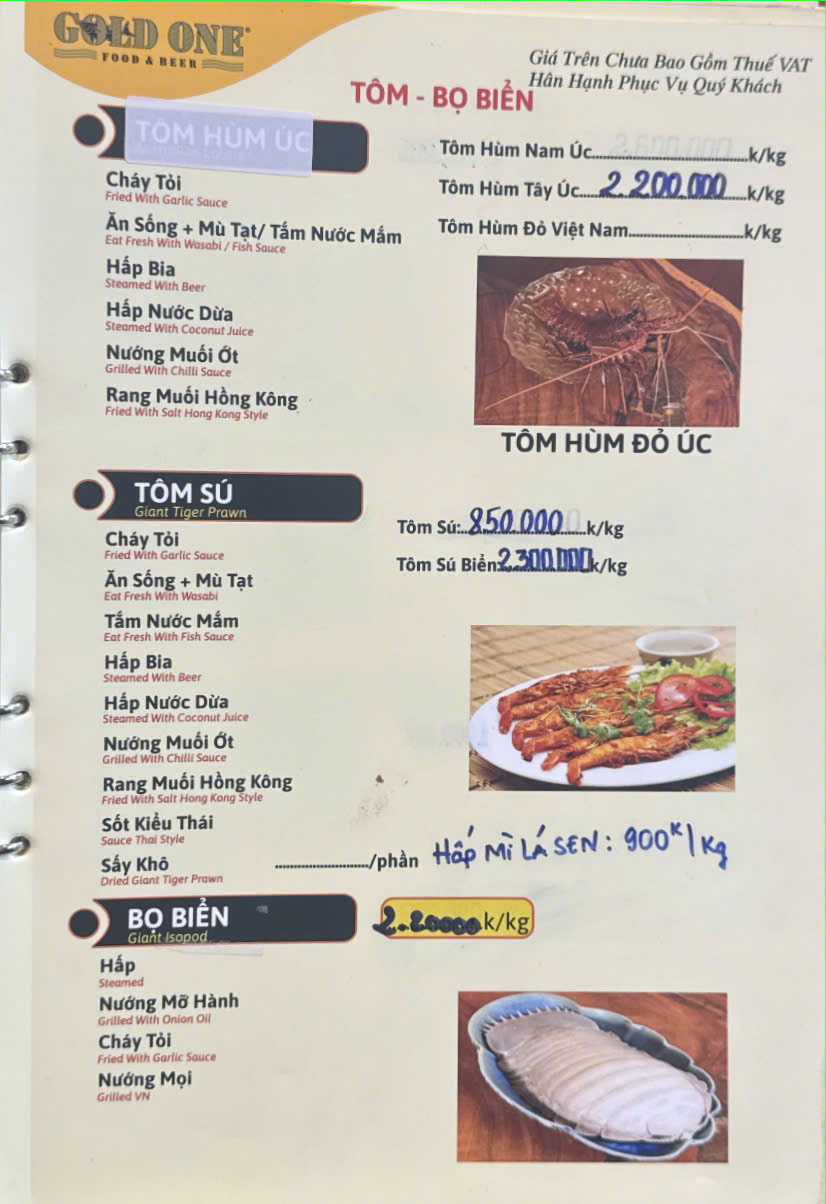 GOLD ONE
FOOD & BEER
Giá Trên Chưa Bao Gồm Thuế VAT
Hân Hạnh Phục Vụ Quý Khách
TÔM - BỌ BIỂN
TÔM HÙM ÚC
Cháy Tỏi
Fried With Garlic Sauce
Ăn Sống + Mù Tạt/ Tắm Nước Mắm
Eat Fresh With Wasabi / Fish Sauce
Hấp Bia
Steamed With Beer
Hấp Nước Dừa
Steamed With Coconut Juice
Nướng Muối Ớt
Grilled With Chilli Sauce
Rang Muối Hồng Kông
Fried With Salt Hong Kong Style
Tôm Hùm Nam Úc..............................k/kg
Tôm Hùm Tây Úc.....2.200.000.....k/kg
Tôm Hùm Đỏ Việt Nam......................k/kg
TÔM HÙM ĐỎ ÚC
TÔM SÚ
Giant Tiger Prawn
Cháy Tỏi
Fried With Garlic Sauce
Ăn Sống + Mù Tạt
Eat Fresh With Wasabi
Tắm Nước Mắm
Eat Fresh With Fish Sauce
Hấp Bia
Steamed With Beer
Hấp Nước Dừa
Steamed With Coconut Juice
Nướng Muối Ớt
Grilled With Chilli Sauce
Rang Muối Hồng Kông
Fried With Salt Hong Kong Style
Sốt Kiểu Thái
Sauce Thai Style
Sấy Khô ......................../phần
Dried Giant Tiger Prawn
Tôm Sú:..850.000.....k/kg
Tôm Sú Biển:2.300.000k/kg
Hấp Mì LÁ SEN: 900K/Kg
BỌ BIỂN
Giant Isopod
2.20000k/kg
Hấp
Steamed
Nướng Mỡ Hành
Grilled With Onion Oil
Cháy Tỏi
Fried With Garlic Sauce
Nướng Mọi
Grilled VN